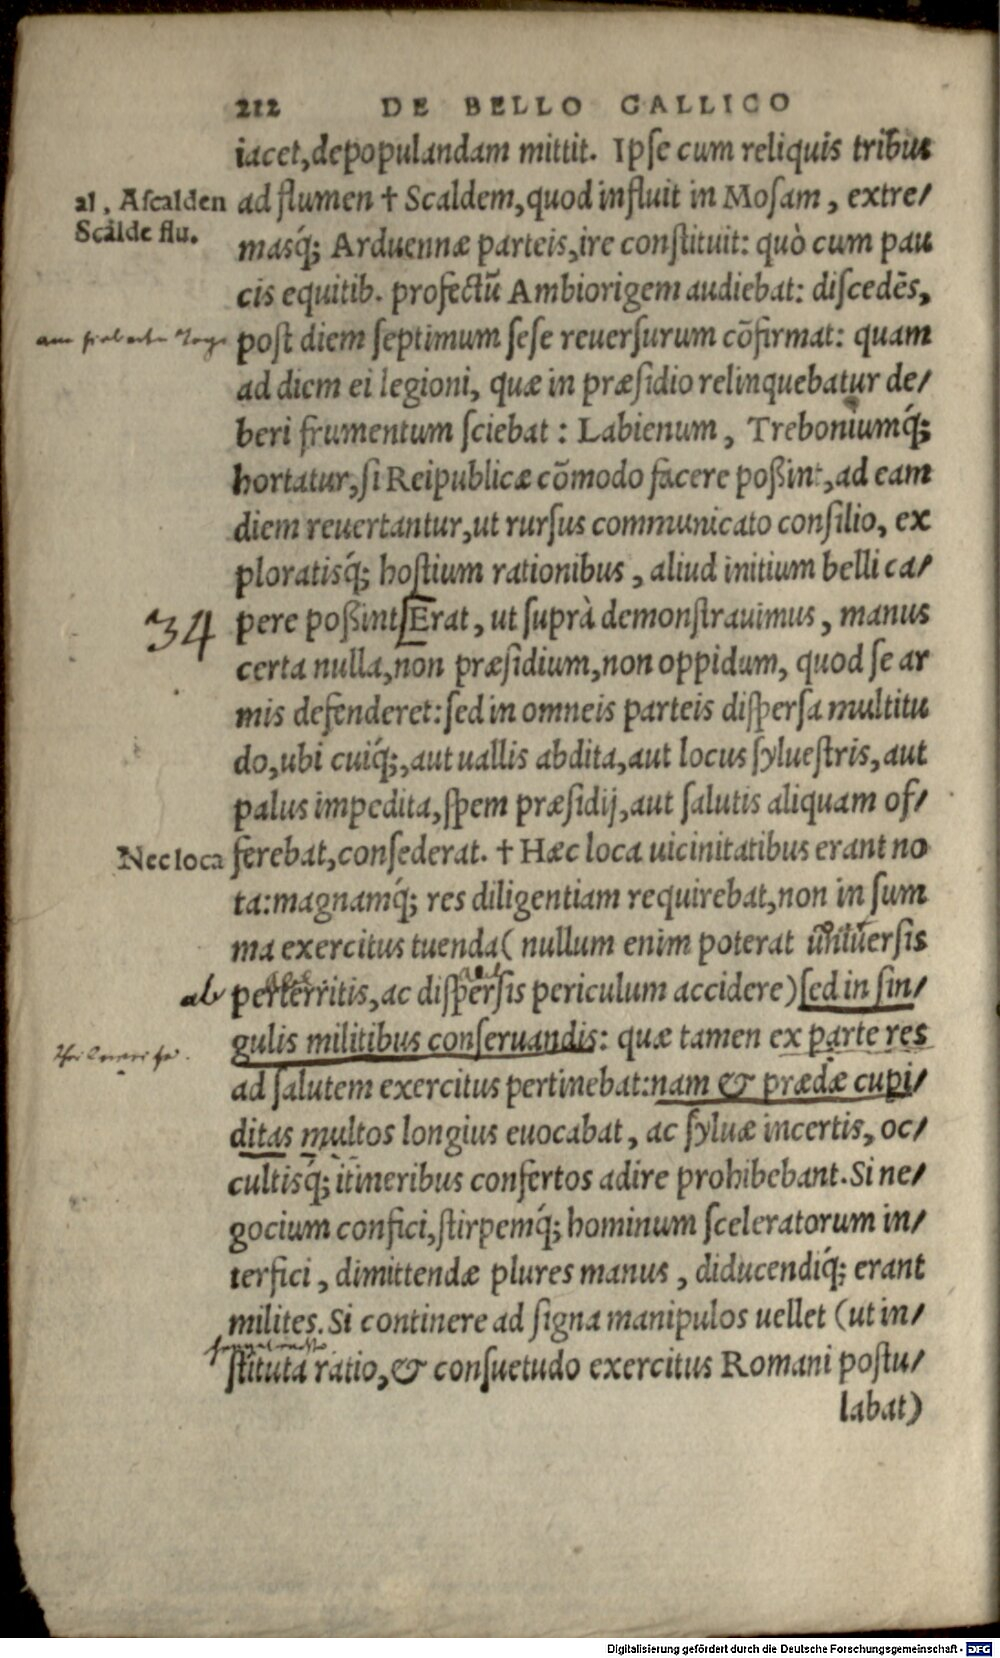 212 DE BELLO GALLICO
iacet, depopulandam mittit. Ipse cum reliquis tribus
al. Ascalden
ad flumen † Scaldem, quod influit in Mosam, extre/
Scalde flu.
masq́; Arduennæ parteis, ire constituit: quò cum pau
cis equitib. profectũ Ambiorigem audiebat: discedẽs,
post diem septimum sese reuersurum cõfirmat: quam
ad diem ei legioni, quæ in præsidio relinquebatur de/
beri frumentum sciebat: Labienum, Treboniumq́;
hortatur, si Reipublicæ cõmodo facere poßint, ad eam
diem reuertantur, ut rursus communicato consilio, ex
ploratisq́; hostium rationibus, aliud initium belli ca/
34
pere poßint Erat, ut suprà demonstrauimus, manus
certa nulla, non præsidium, non oppidum, quod se ar
mis defenderet: sed in omneis parteis dispersa multitu
do, ubi cuiq́;, aut uallis abdita, aut locus syluestris, aut
palus impedita, spem præsidij, aut salutis aliquam of/
Nec loca
ferebat, consederat. † Hæc loca uicinitatibus erant no
ta: magnamq́; res diligentiam requirebat, non in sum
ma exercitus tuenda (nullum enim poterat uniuersis
ab
perterritis, ac dispersis periculum accidere) sed in sin/
gulis militibus conseruandis: quæ tamen ex parte res
ad salutem exercitus pertinebat: nam & prædæ cupi/
ditas multos longius euocabat, ac syluæ incertis, oc/
cultisq́; itineribus confertos adire prohibebant. Si ne/
gocium confici, stirpemq́; hominum sceleratorum in/
terfici, dimittendæ plures manus, diducendiq́; erant
milites. Si continere ad signa manipulos uellet (ut in/
stituta ratio, & consuetudo exercitus Romani postu/
labat)
Digitalisierung gefördert durch die Deutsche Forschungsgemeinschaft - DFG